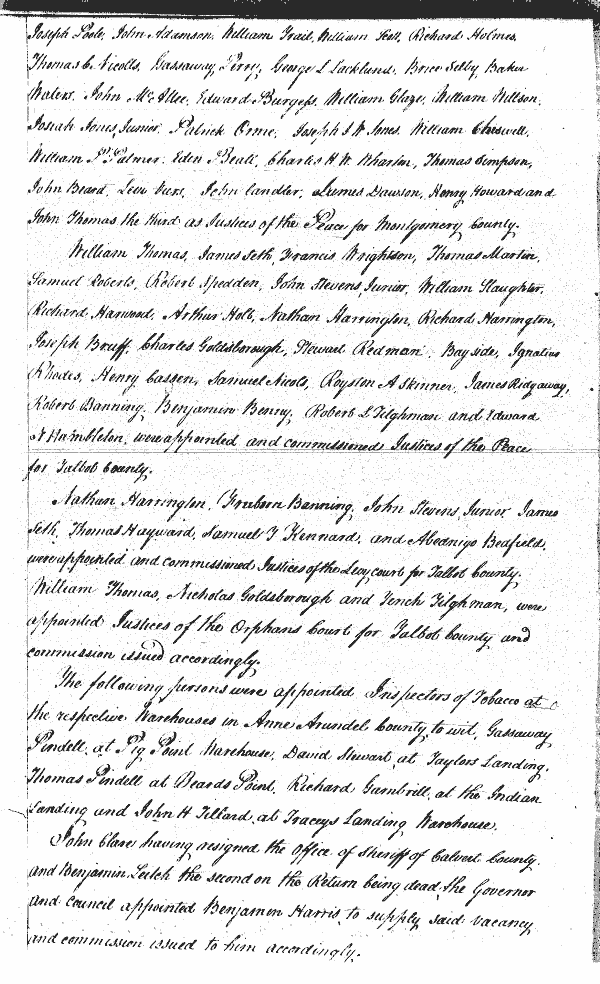 Joseph Poole, John Adamson, William Trail, William Scott, Richard Holmes,
Thomas C. Nicolls, Gassaway Perry, George L Lackland, Brice Selby, Baker
Waters, John McAtee, Edward Burgess, William Glaze, William Willson,
Josiah Jones, Junior, Patrick Orme, Joseph J W Jones, William Chiswell,
William P. Palmer, Eden Beall, Charles H. W. Wharton, Thomas Simpson,
John Beard, Levi Viers, John Candler, James Dawson, Henry Howard and
John Thomas the third as Justices of the Peace for Montgomery County.
William Thomas, James Seth, Francis Wrightson, Thomas Martin,
Samuel Roberts, Robert Spedden, John Stevens, Junior, William Slaughter,
Richard Harwood, Arthur Holt, Nathan Harrington, Richard Harrington,
Joseph Bruff, Charles Goldsborough, Steward Redman, Bayside, Ignatius
Rhodes, Henry Casson, Samuel Nicols, Royston A Skinner, James Ridgaway,
Robert Banning, Benjamin Benny, Robert L Tilghman and Edward
N Hambleton, were appointed and commissioned Justices of the Peace
for Talbot County.
Nathan Harrington, Freeborn Banning, John Stevens, Junior James
Seth, Thomas Hayward, Samuel T Kennard, and Abednigo Bodfield,
were appointed and commissioned Justices of the Levy court for Talbot County.
William Thomas, Nicholas Goldsborough and Tench Tilghman, were
appointed Justices of the Orphans Court for Talbot County and
commission issued accordingly.
The following persons were appointed Inspectors of Tobacco at
the respective Warehouses in Anne Arundel County, to wit, Gassaway
Pindell, at Pig Point Warehouse, David Stewart, at Taylors Landing,
Thomas Pindell at Beards Point, Richard Gambrill, at the Indian
Landing and John H Tillard, at Traceys Landing Warehouse.
John Clare having resigned the office of Sheriff of Calvert County,
and Benjamin Leitch the second on the Return being dead, the Governor
and Council appointed Benjamin Harris, to supply said vacancy
and commission issued to him accordingly.